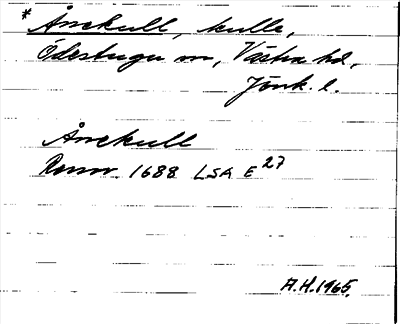 * Ånekull, kulle,
Ödestugu sn, Västra hd,
Jönk. l.
Ånekull
Renov. 1688 LSA E 27
A.H. 1965.